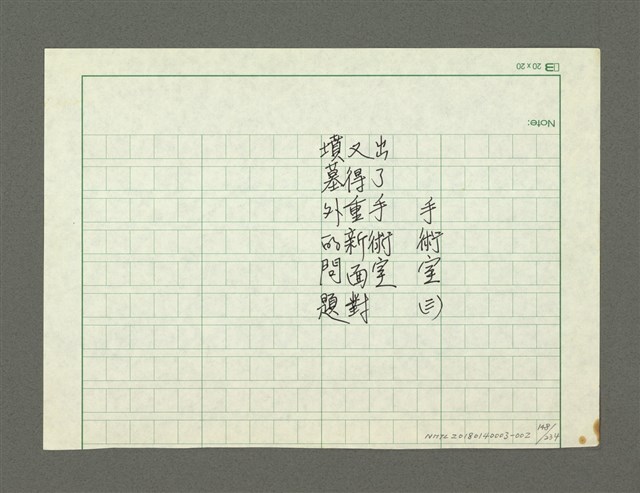 手術室(三)
出了手術室
又得重新面對
墳墓外的問題
20×20
Note:
NMTL20180140003-002
148/234